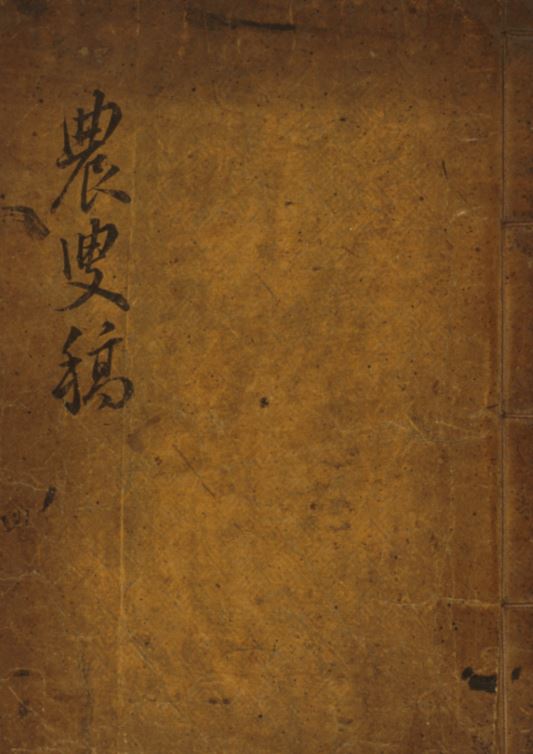 農叟稿